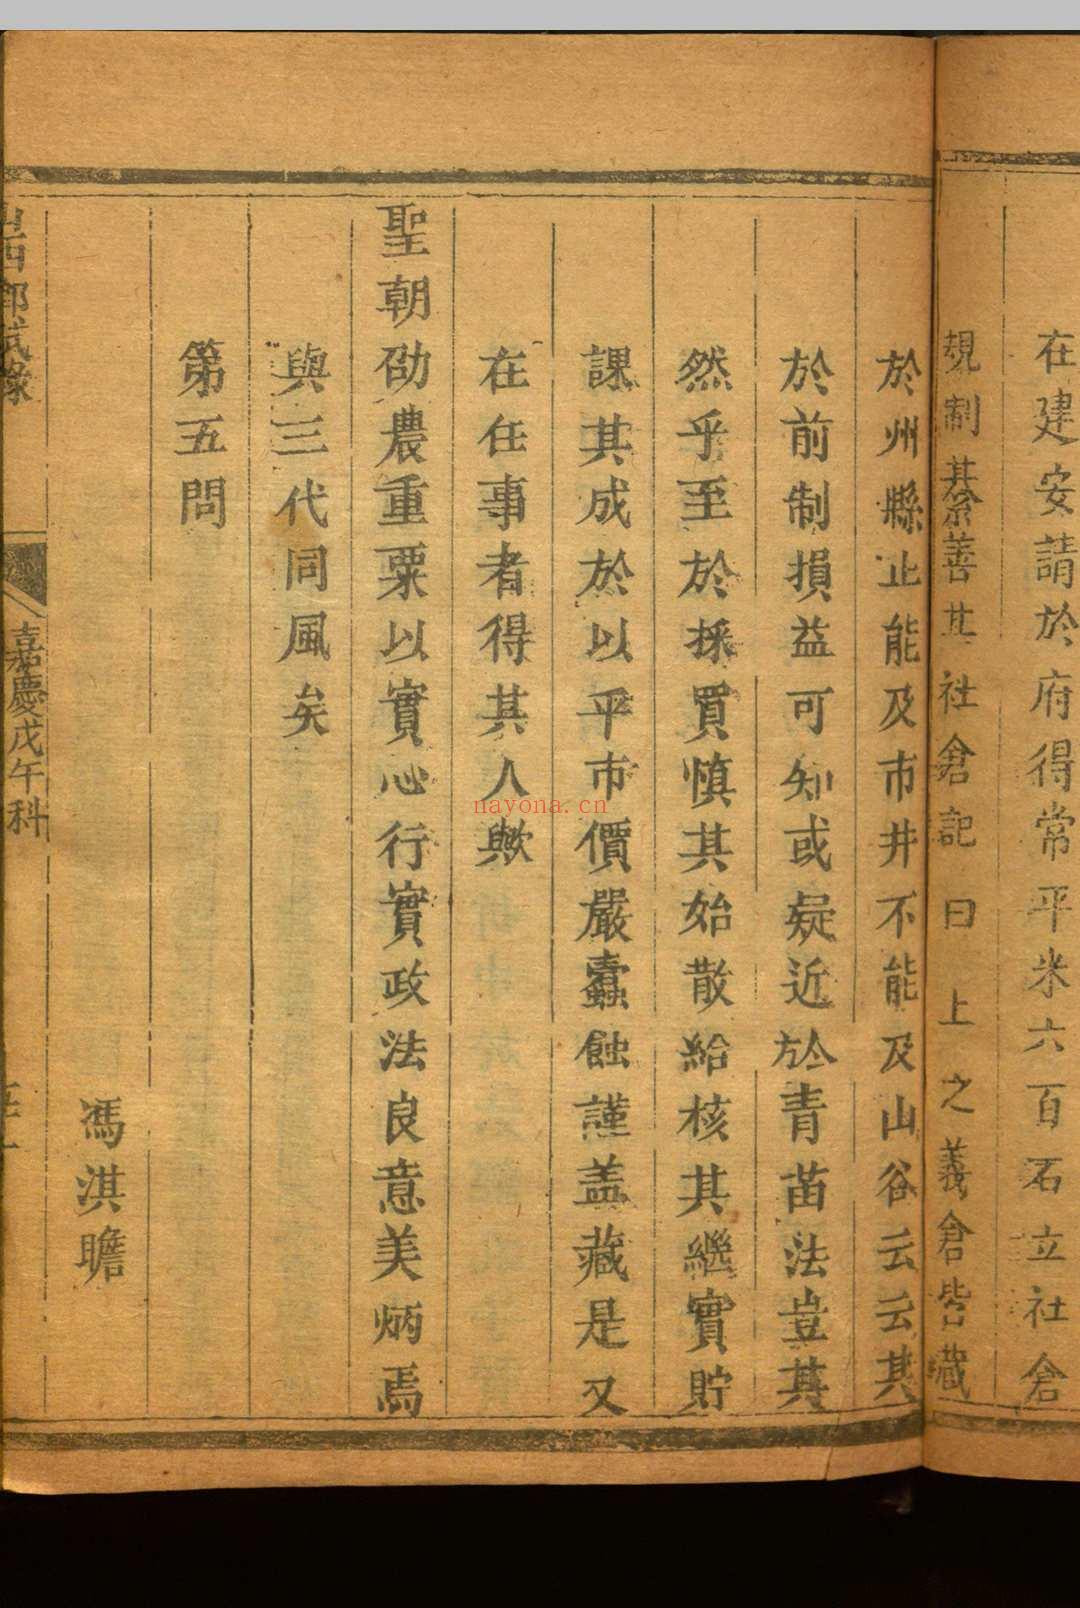 在建安請於府得常平米六百石立社倉
規制綦善其社倉記曰上之義倉皆藏
於州縣止能及市井不能及山谷云云其
於前制損益可知或疑近於青苗法豈其
然乎至於採買慎其始散給核其繼實貯
課其成於以平市價嚴蠹蝕謹蓋藏是又
在任事者得其人歟
聖朝劭農重粟以實心行實政法良意美炳焉
與三代同風矣
第五問
馮淇瞻
鄉試錄
嘉慶戊午科
nayona.cn